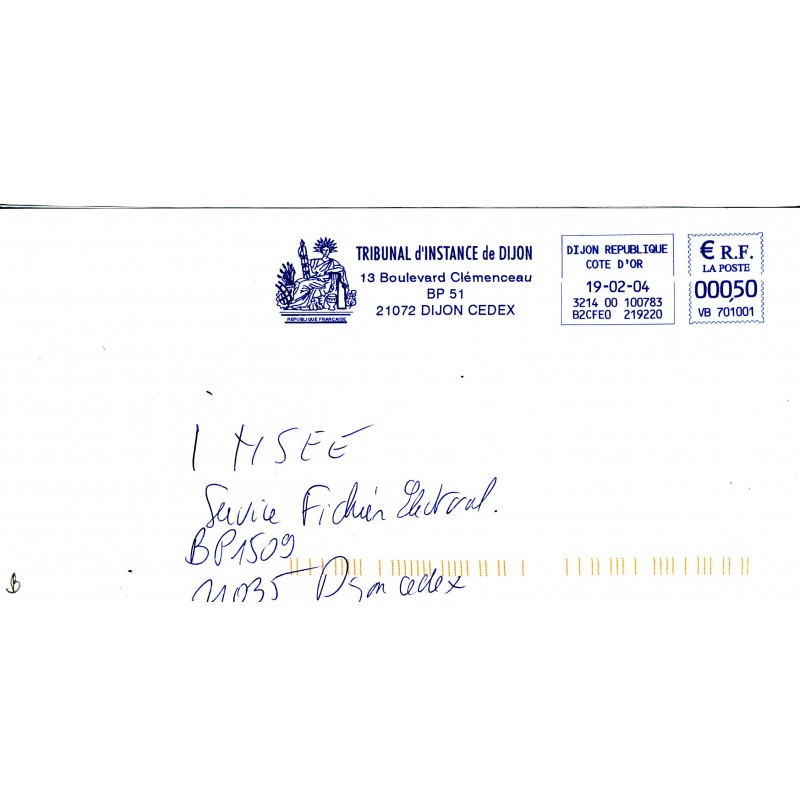 TRIBUNAL d'INSTANCE de DIJON
13 Boulevard Clémenceau
BP 51
21072 DIJON CEDEX
REPUBLIQUE FRANCAISE
DIJON REPUBLIQUE
COTE D'OR
19-02-04
3214 00 100783
B2CFE0 219220
€ R.F.
LA POSTE
000,50
VB 701001
INSEE
Service Fichier Electoral.
BP1509
21035 Dijon cedex
B